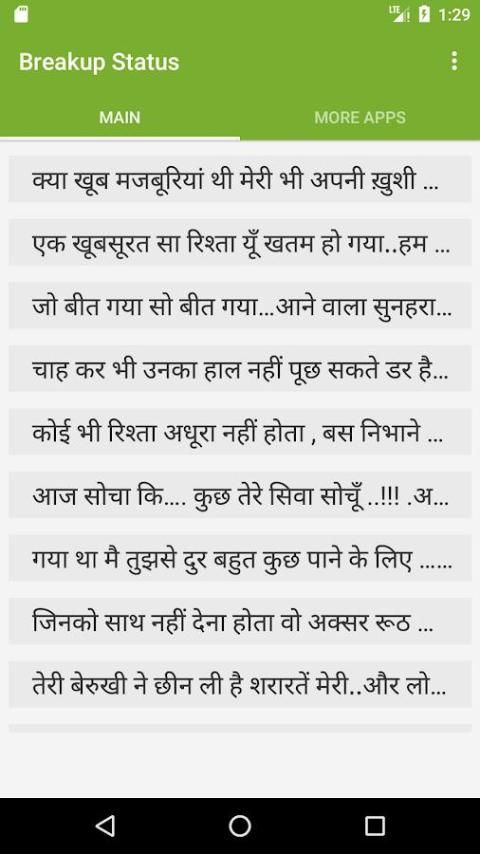 LTE 1:29
Breakup Status
MAIN MORE APPS
क्या खूब मजबूरियां थी मेरी भी अपनी ख़ुशी ...
एक खूबसूरत सा रिश्ता यूँ खतम हो गया..हम ...
जो बीत गया सो बीत गया...आने वाला सुनहरा...
चाह कर भी उनका हाल नहीं पूछ सकते डर है...
कोई भी रिश्ता अधूरा नहीं होता , बस निभाने ...
आज सोचा कि.... कुछ तेरे सिवा सोचूँ ..!!! .अ...
गया था मै तुझसे दुर बहुत कुछ पाने के लिए ......
जिनको साथ नहीं देना होता वो अक्सर रूठ ...
तेरी बेरुखी ने छीन ली है शरारतें मेरी..और लो...